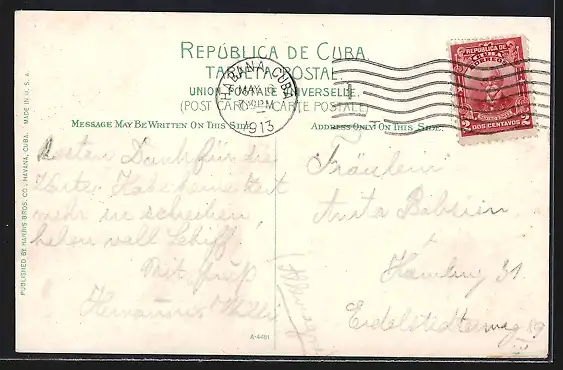 REPÚBLICA DE CUBA
TARJETA POSTAL
UNION POSTALE UNIVERSELLE.
(POST CARD - CARTE POSTALE)
MESSAGE MAY BE WRITTEN ON THIS SIDE.
ADDRESS ONLY ON THIS SIDE.
HABANA, CUBA
MAY
1913
REPUBLICA DE
CUBA
CORREOS
2 DOS CENTAVOS 2
Besten Dank für die
Karten. Habe keine Zeit
mehr zu schreiben,
haben voll Schiff.
Mit Gruß
Hermann
Fräulein
Anita
Hamburg 31
Eidelstedterweg 89
A-4481
PUBLISHED BY HARRIS BROS. CO., HAVANA, CUBA. MADE IN U. S. A.